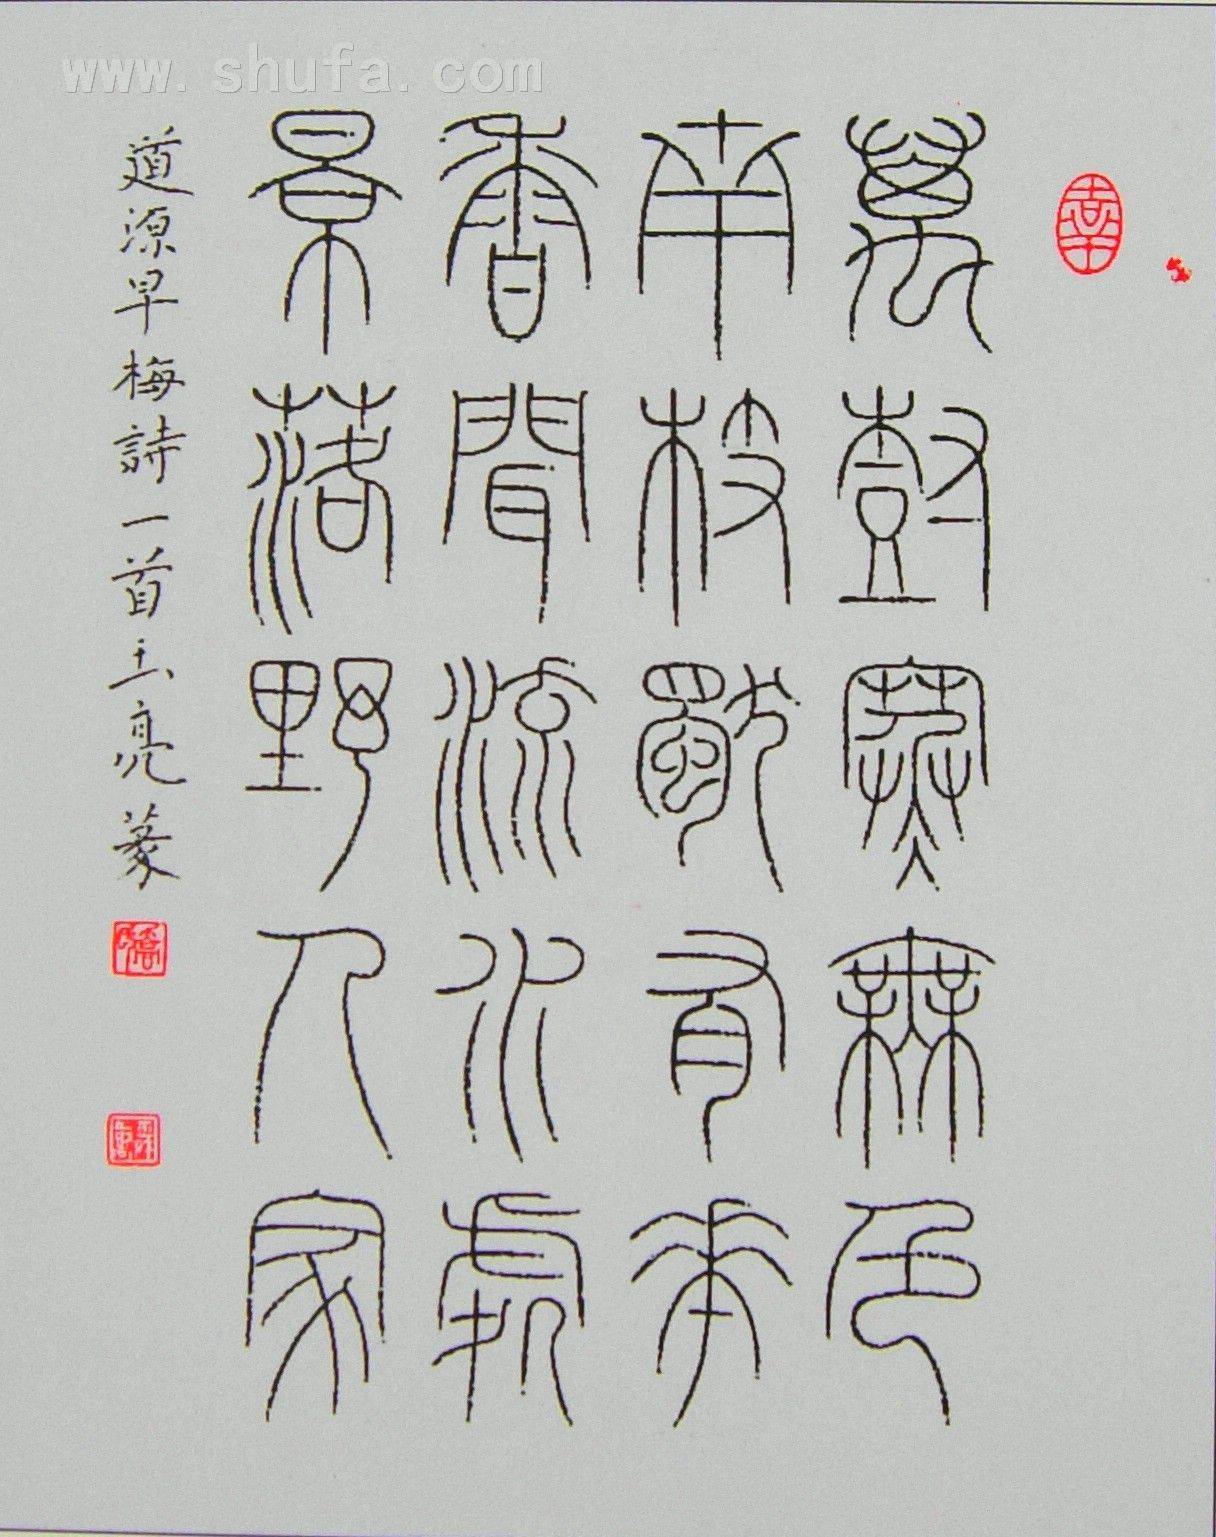 www.shufa.com
萬尌寒無色
南枝獨有華
香聞流水處
景落野人家
道源早梅詩一首玉亮篆